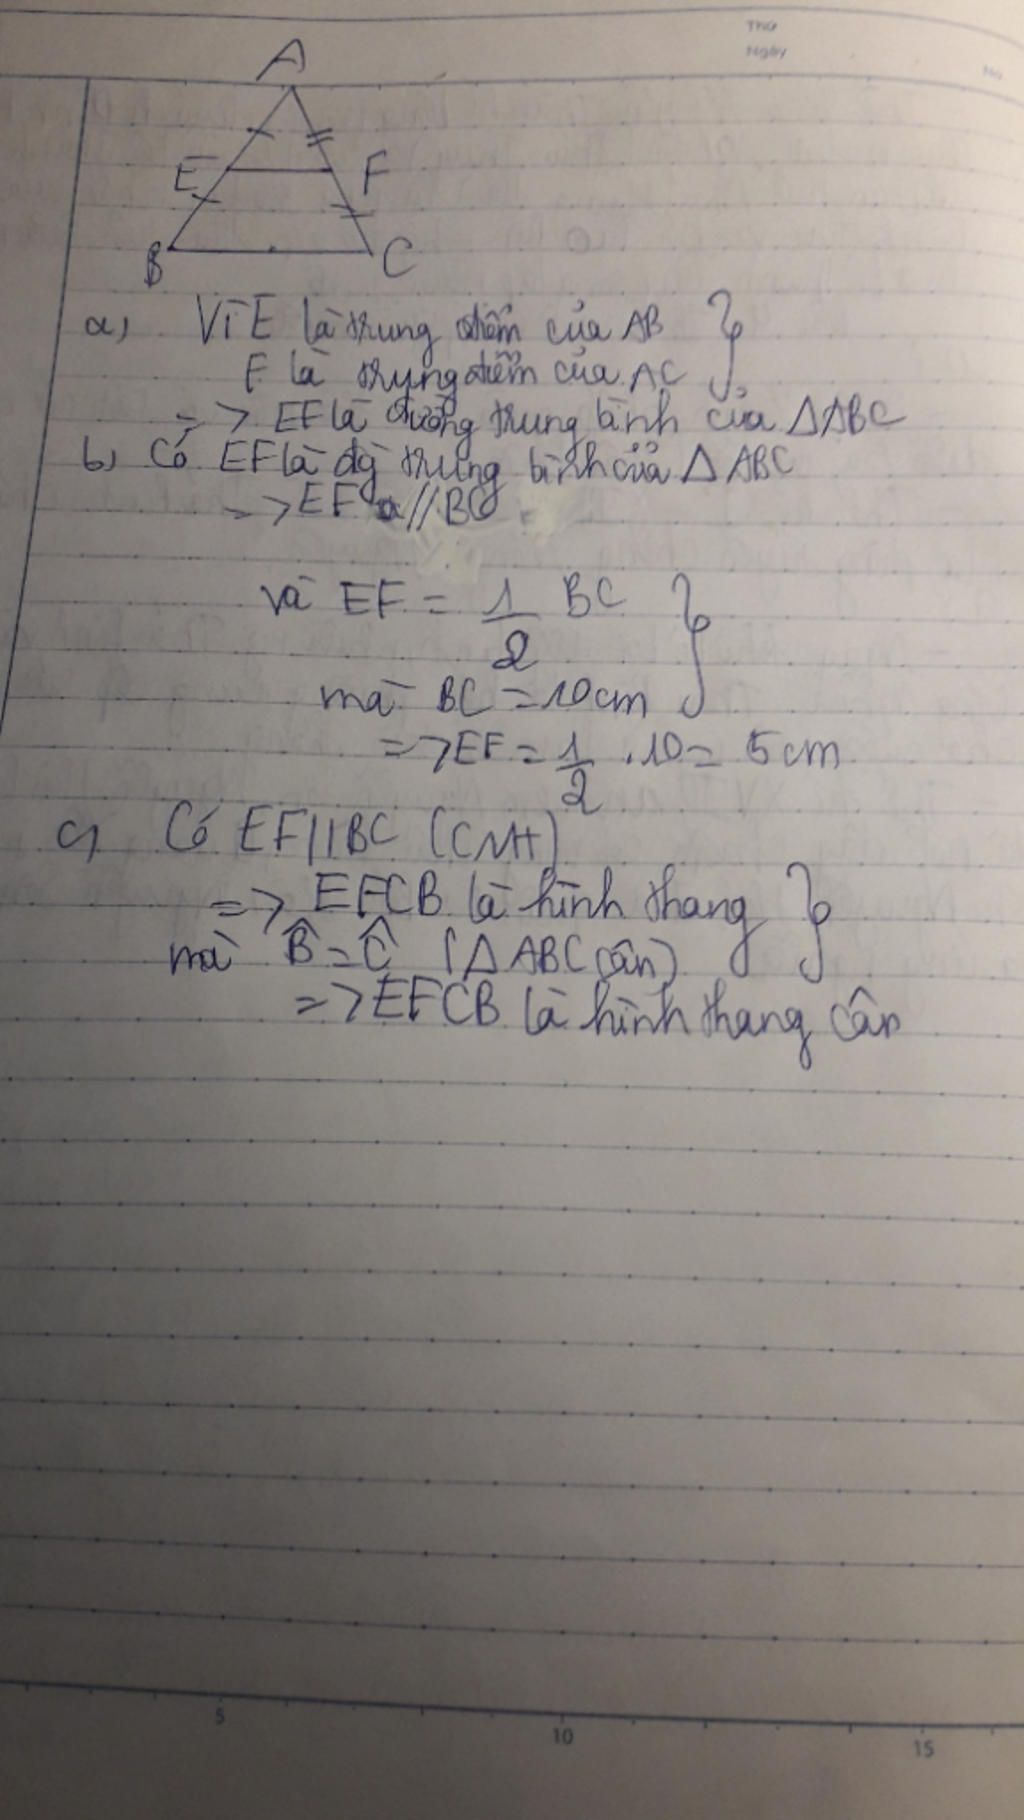 Thứ
Ngày
No.
A
E F
B C
a) Vì E là trung điểm của AB
F là trung điểm của AC
=> EF là đường trung bình của △ABC
b) Có EF là đg trung bình của △ABC
=> EF // BC
và EF = 1/2 BC
mà BC = 10cm
=> EF = 1/2 . 10 = 5cm
c) Có EF//BC (CMt)
=> EFCB là hình thang
mà B̂ = Ĉ (△ABC cân)
=> EFCB là hình thang cân
5 10 15